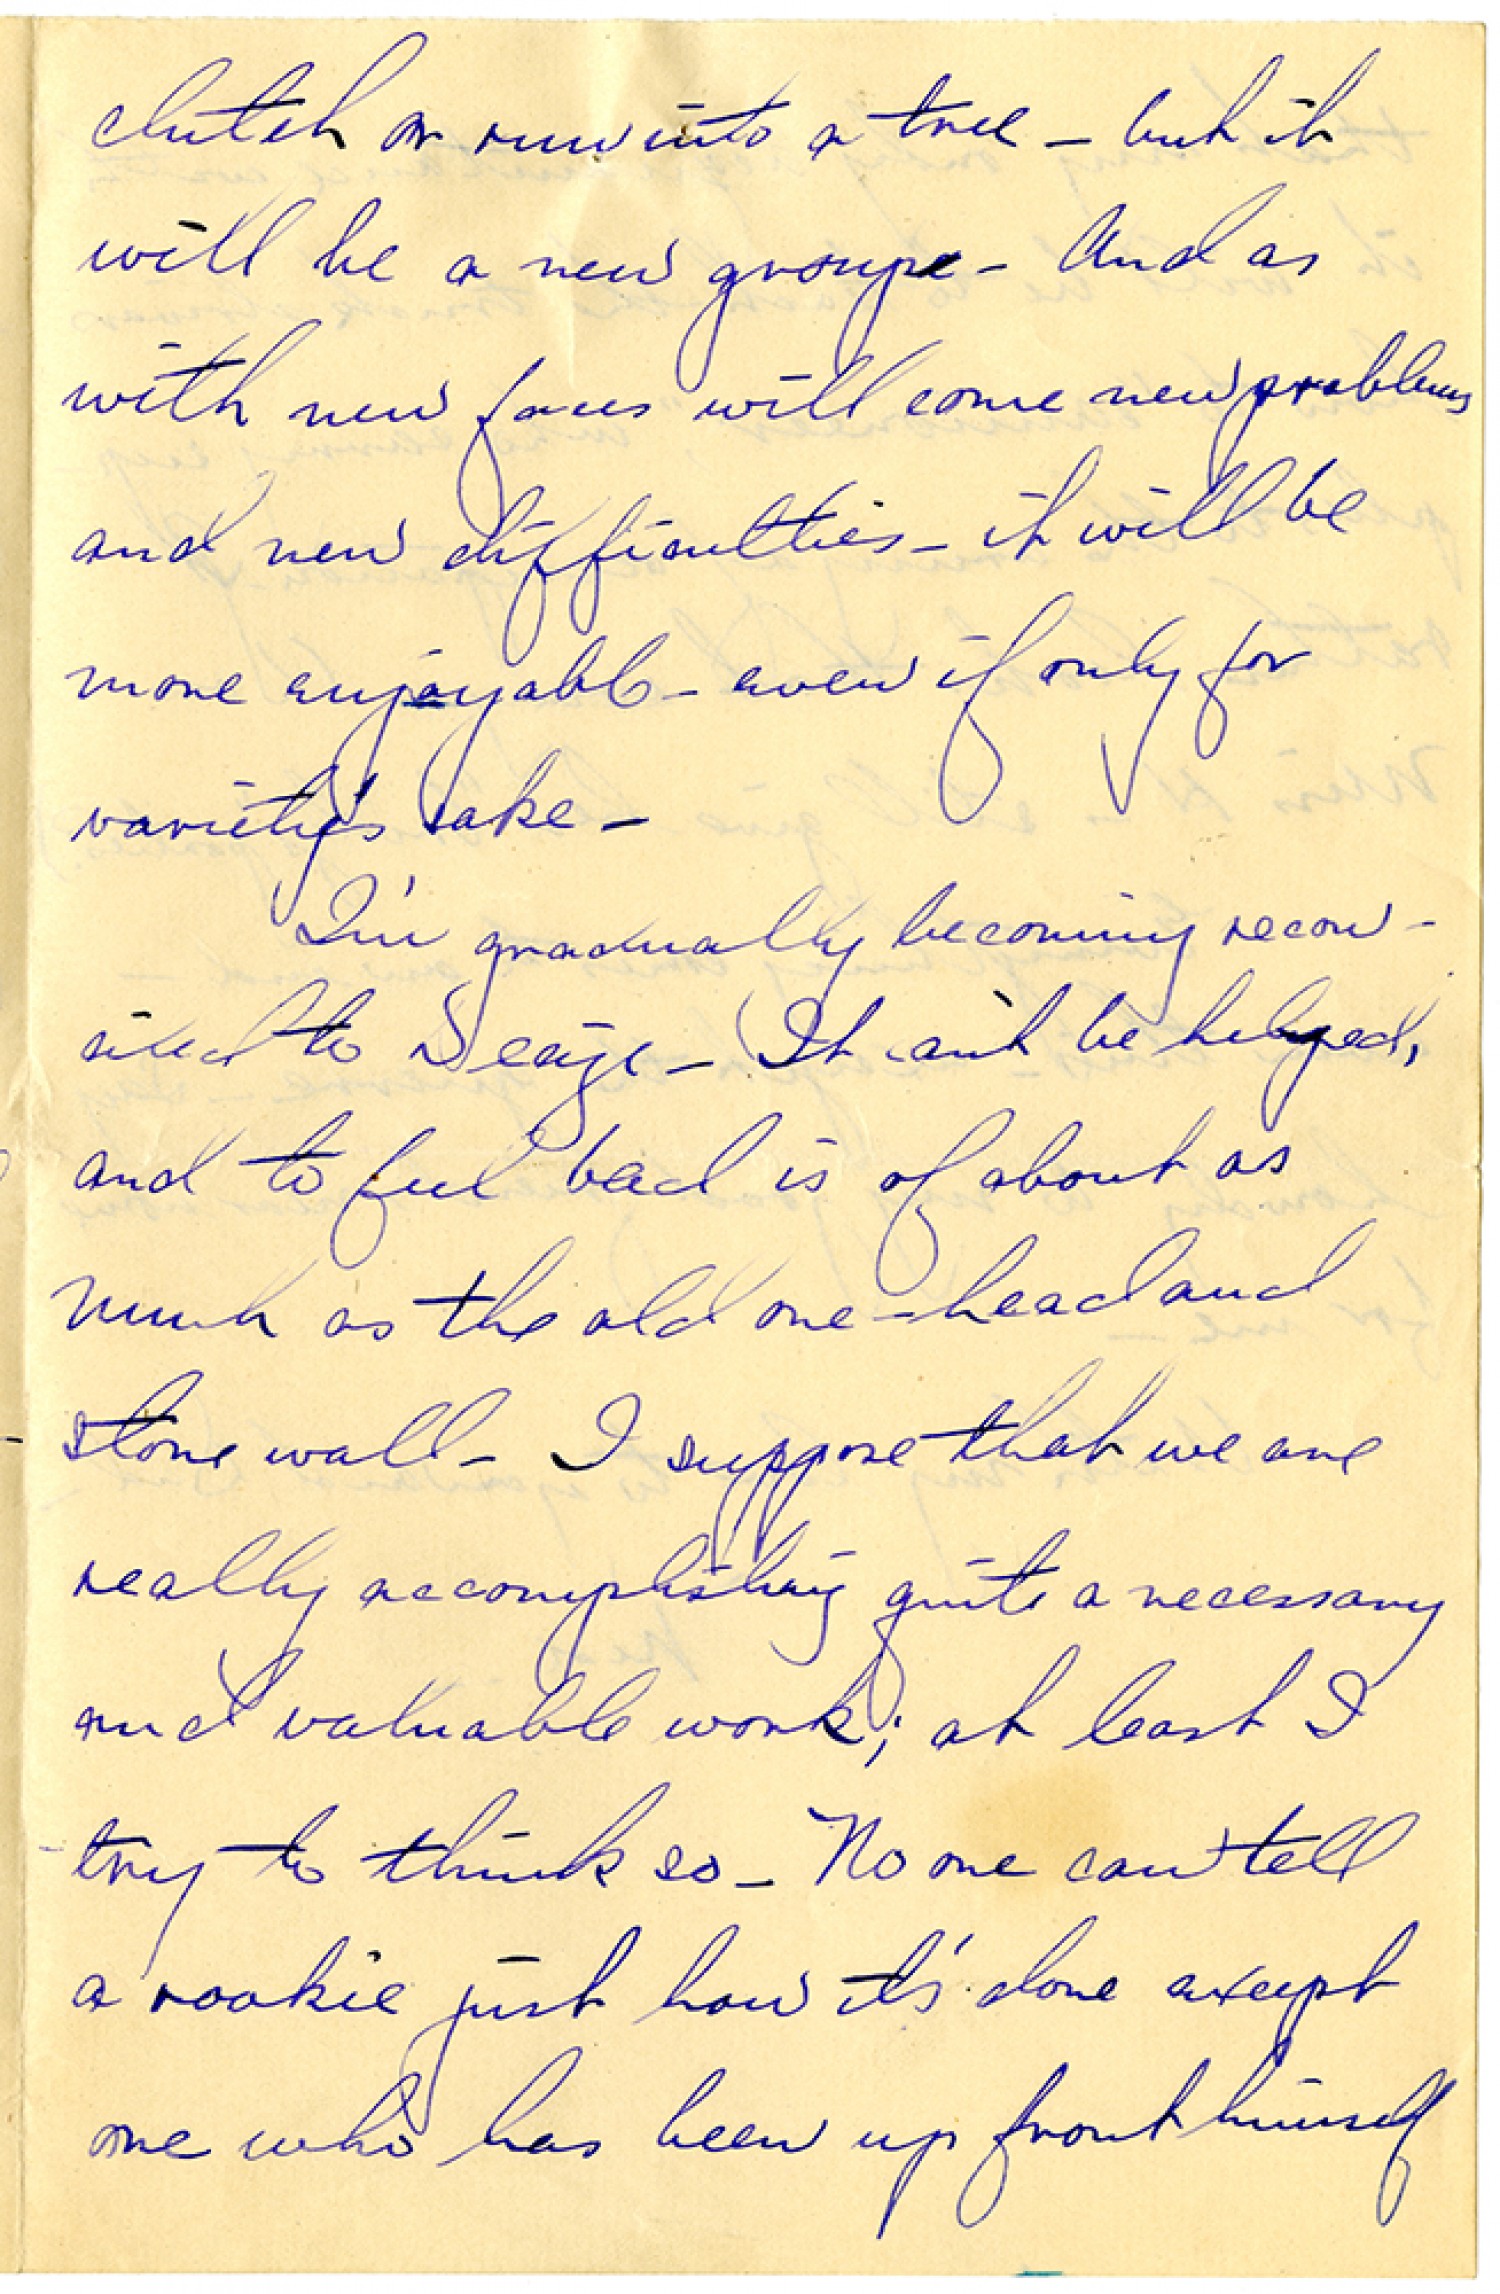 clutch or run into a tree – but it
will be a new groupe – And as
with new faces will come new problems
and new difficulties – it will be
more enjoyable – even if only for
varietys sake –
I'm gradually becoming recon-
ciled to Deige – It cant be helped,
and to feel bad is of about as
much as the old one – head and
stone wall – I suppose that we are
really accomplishing quite a necessary
and valuable work; at least I
try to think so – No one can tell
a rookie just how it's done except
one who has been up front himself